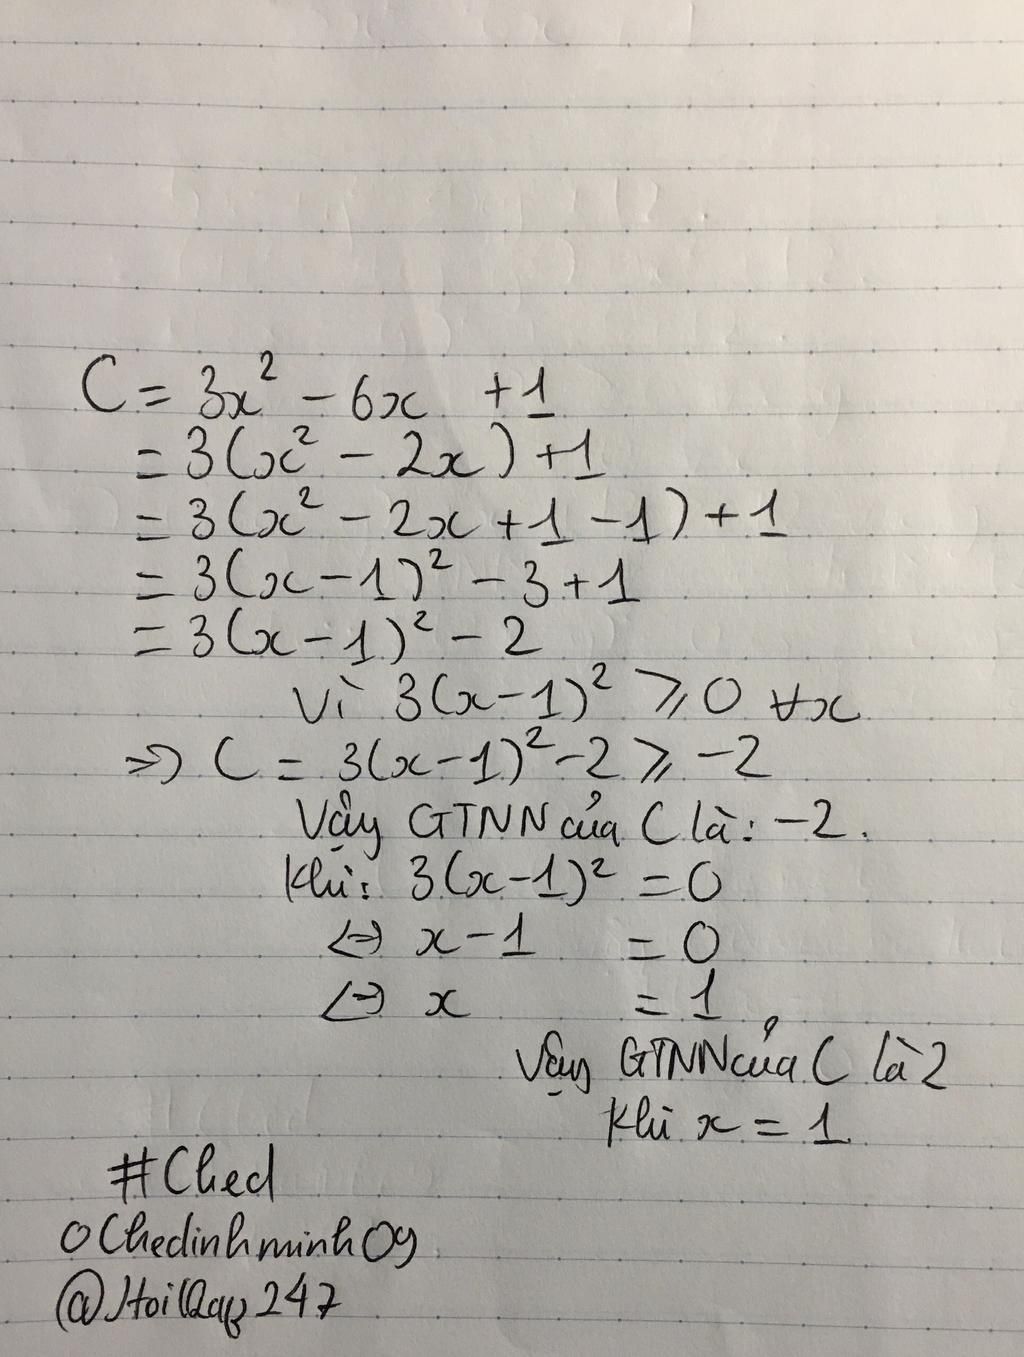 C = 3x² - 6x + 1
= 3(x² - 2x) + 1
= 3(x² - 2x + 1 - 1) + 1
= 3(x - 1)² - 3 + 1
= 3(x - 1)² - 2
Vì 3(x - 1)² ⩾ 0 ∀x
=> C = 3(x - 1)² - 2 ⩾ -2
Vậy GTNN của C là: -2.
Khi: 3(x - 1)² = 0
<=> x - 1 = 0
<=> x = 1
Vậy GTNN của C là 2
Khi x = 1
#Ched
Chedinhminh09
@Hoi247